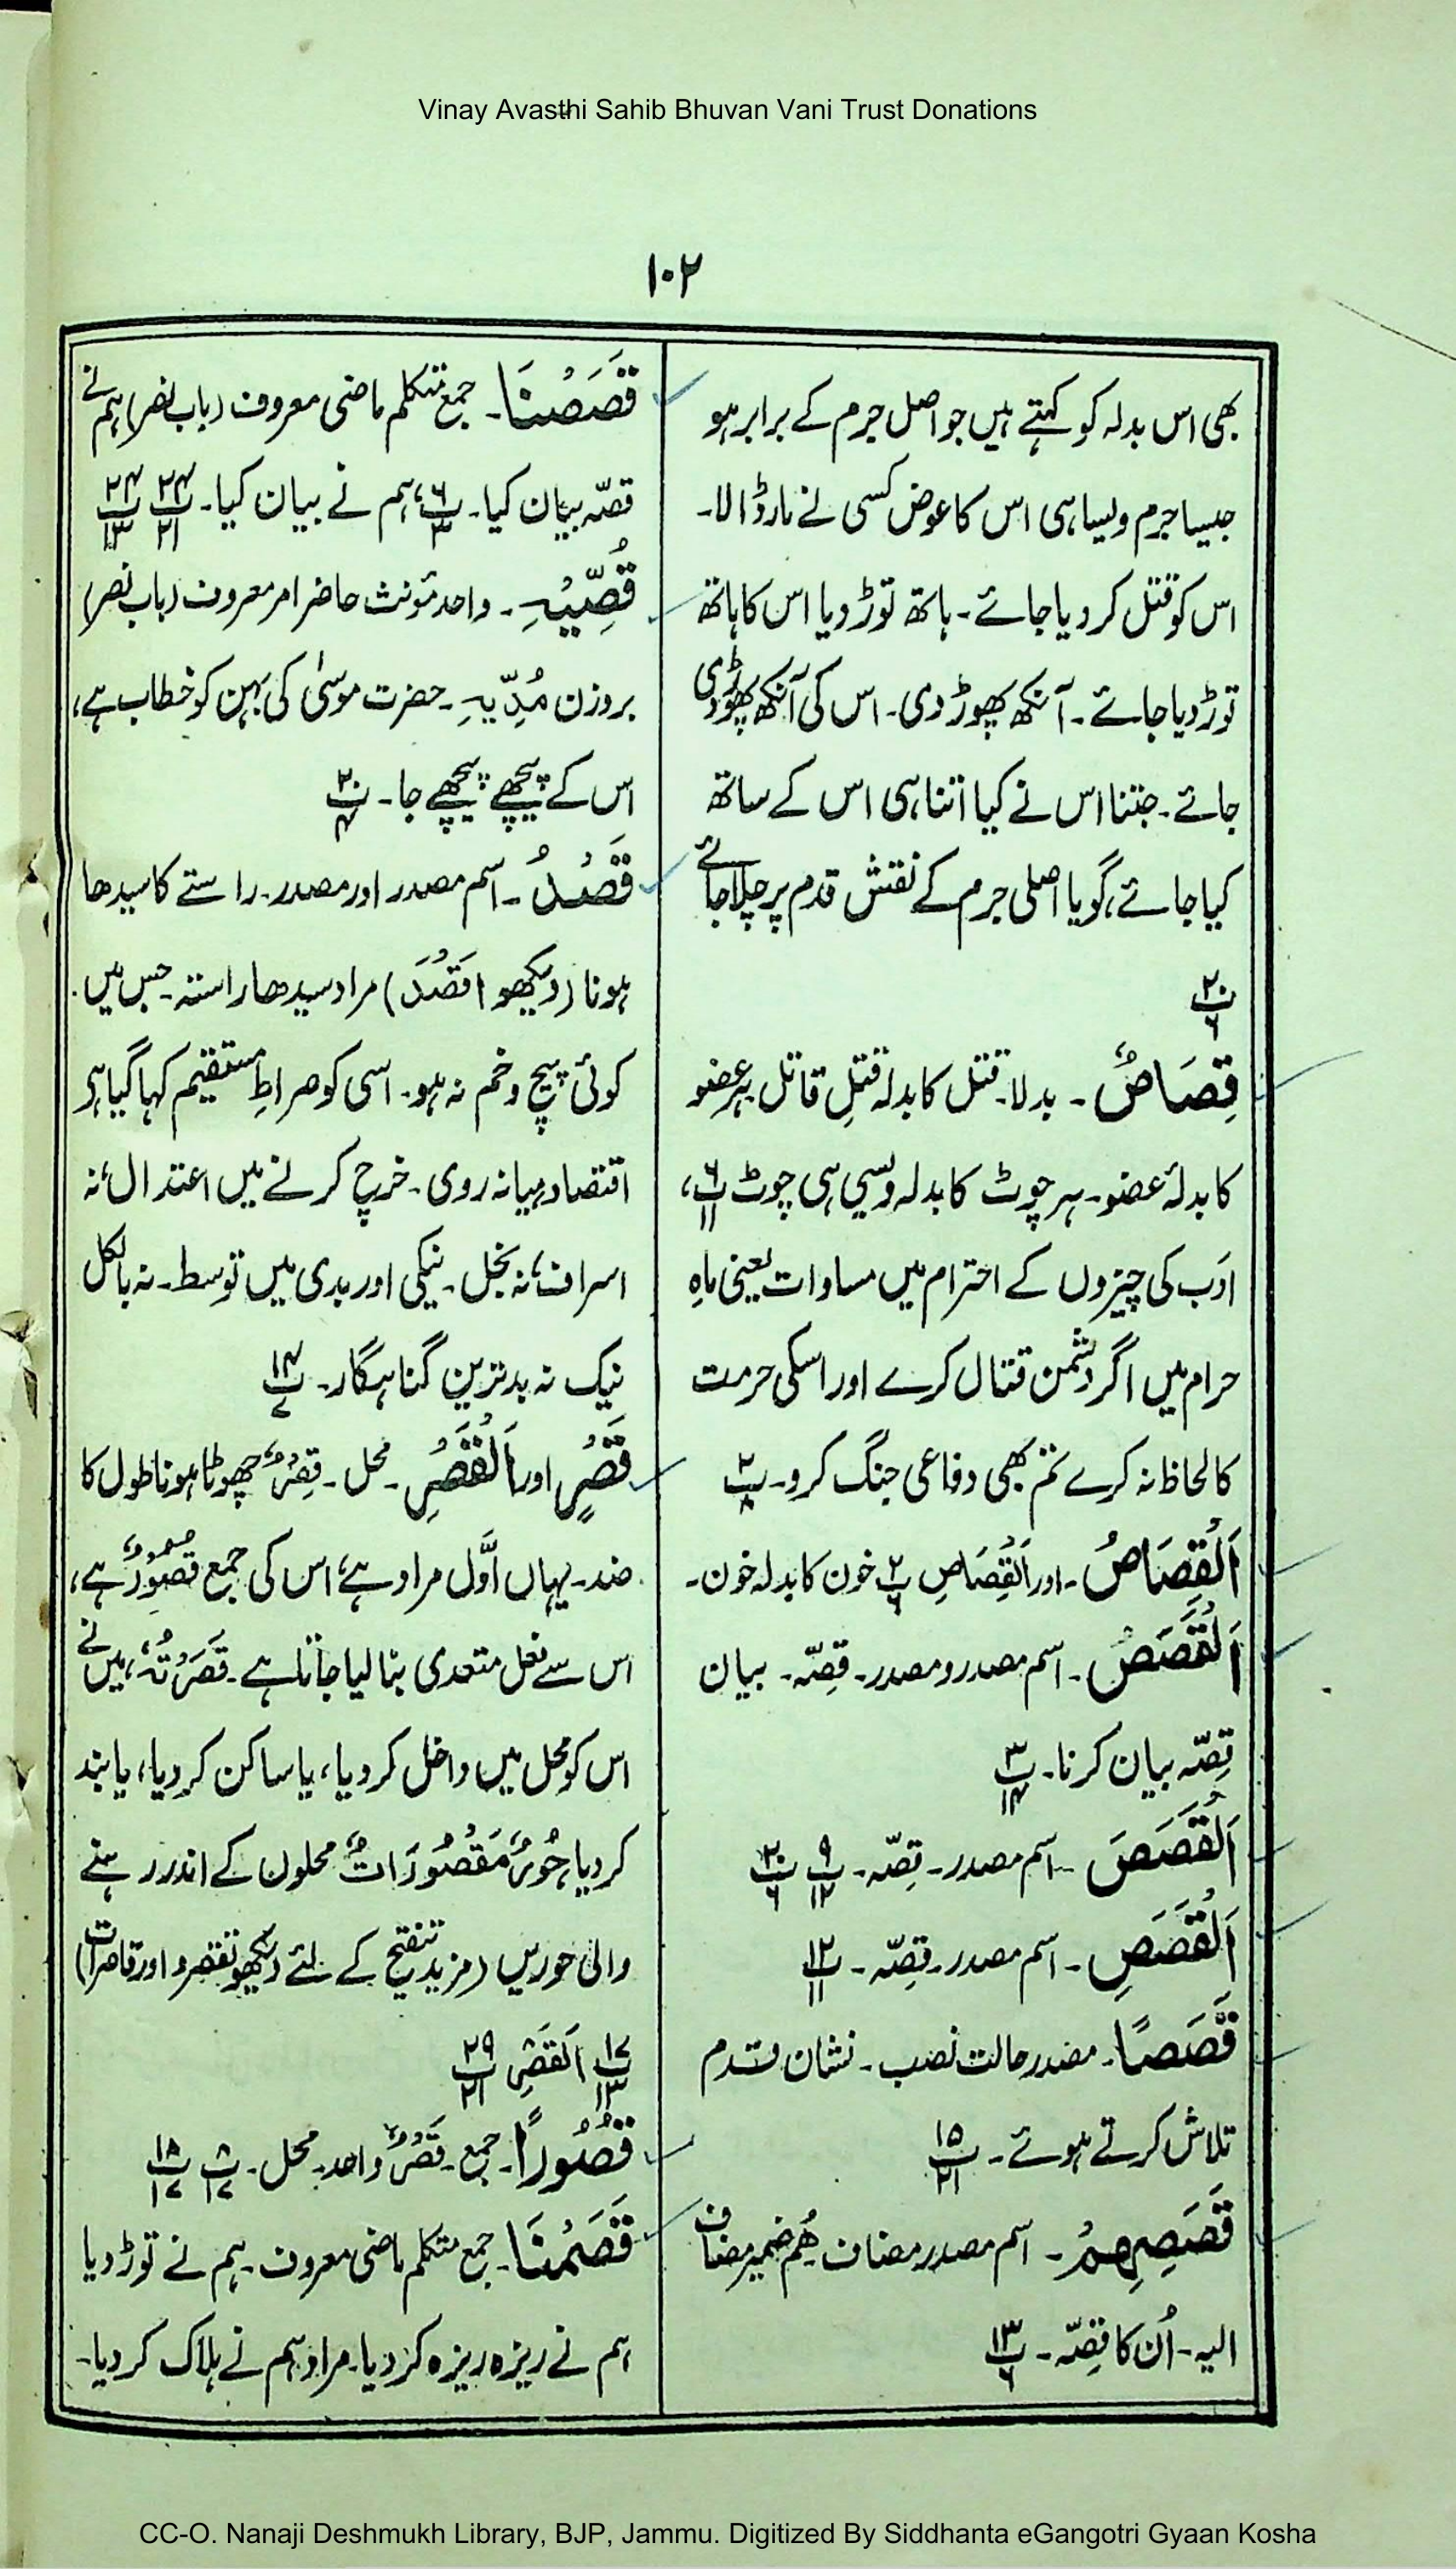 Vinay Avasthi Sahib Bhuvan Vani Trust Donations
۱۰۲
بھی اس بدلہ کو کہتے ہیں جو اصل جرم کے برابر ہو
جیسا جرم ویسا ہی اس کا عوض کسی نے مار ڈالا۔
اس کو قتل کر دیا جائے۔ ہاتھ توڑ دیا اس کا ہاتھ
توڑ دیا جائے۔ آنکھ پھوڑ دی۔ اس کی آنکھ پھوڑ دی
جائے۔ جتنا اس نے کیا اتنا ہی اس کے ساتھ
کیا جائے، گویا اصلی جرم کے نقش قدم پر چلا جائے
پ۲۰/۶
قِصَاصٌ۔ بدلا۔ قتل کا بدلہ قتلِ قاتل ہر عضو
کا بدلہ عضو۔ ہر چوٹ کا بدلہ ویسی ہی چوٹ پ۶/۱۱،
ادب کی چیزوں کے احترام میں مساوات یعنی ماہِ
حرام میں اگر دشمن قتال کرے اور اسکی حرمت
کا لحاظ نہ کرے تم بھی دفاعی جنگ کرو۔ پ۲/۸
اَلْقِصَاصُ۔ اور اَلْقِصَاصِ پ۲/۶ خون کا بدلہ خون۔
اَلْقَصَصُ۔ اسم مصدر و مصدر۔ قصّہ۔ بیان
قِصّہ بیان کرنا۔ پ۳/۱۴
اَلْقَصَصَ۔ اسم مصدر۔ قصّہ۔ پ۹/۱۲ پ۲۰/۶
اَلْقَصَصِ۔ اسم مصدر۔ قِصّہ۔ پ۱۲/۱۱
قَصَصًا۔ مصدر حالت نصب۔ نشان قدم
تلاش کرتے ہوئے۔ پ۱۵/۲۱
قَصَصِهِمْ۔ اسم مصدر مضاف هُم ضمیر مضاف
الیہ۔ اُن کا قِصّہ۔ پ۱۳/۶
قَصَصْنَا۔ جمع متکلم ماضی معروف (باب نصر) ہم نے
قصّہ بیان کیا۔ پ۶/۳، ہم نے بیان کیا۔ پ۲۴/۲۱ پ۲۴/۱۳
قُصِّیْهِ۔ واحد مؤنث حاضر امر معروف (باب نصر)
بروزن مُدِّیْهِ۔ حضرت موسیٰ کی بہن کو خطاب ہے،
اس کے پیچھے پیچھے جا۔ پ۲۰/۴
قَصْدُ۔ اسم مصدر اور مصدر۔ راستے کا سیدھا
ہونا (دیکھو اقْصُدْ) مراد سیدھا راستہ۔ جس میں
کوئی پیچ و خم نہ ہو۔ اسی کو صراطِ مستقیم کہا گیا ہے
اقتصاد میانہ روی۔ خرچ کرنے میں اعتدال نہ
اسراف نہ بخل۔ نیکی اور بدی میں توسط۔ نہ بالکل
نیک نہ بدترین گناہگار۔ پ۱۴/۷
قَصْرٍ اور اَلْقَصْرِ۔ محل۔ قِصَرٌ چھوٹا ہونا طول کا
ضد۔ یہاں اوّل مراد ہے، اس کی جمع قُصُوْرٌ ہے،
اس سے فعل متعدی بنا لیا جاتا ہے۔ قَصَرْتُهٗ، میں نے
اس کو محل میں داخل کر دیا، یا ساکن کر دیا، یا بند
کر دیا، حُوْرٌ مَقْصُوْرَاتٌ محلوں کے اندر رہنے
والی حوریں (مزید تنقیح کے لئے دیکھو تقصروا اور قاصرات)
پ۱۷/۱۳ اَلْقَصْرِ پ۲۹/۲۱
قُصُوْرًا۔ جمع۔ قَصْرٌ واحد۔ محل۔ پ۸/۱۷ پ۱۸/۱۷
قَصَمْنَا۔ جمع متکلم ماضی معروف۔ ہم نے توڑ دیا
ہم نے ریزہ ریزہ کر دیا۔ مراد ہم نے ہلاک کر دیا۔
CC-O. Nanaji Deshmukh Library, BJP, Jammu. Digitized By Siddhanta eGangotri Gyaan Kosha